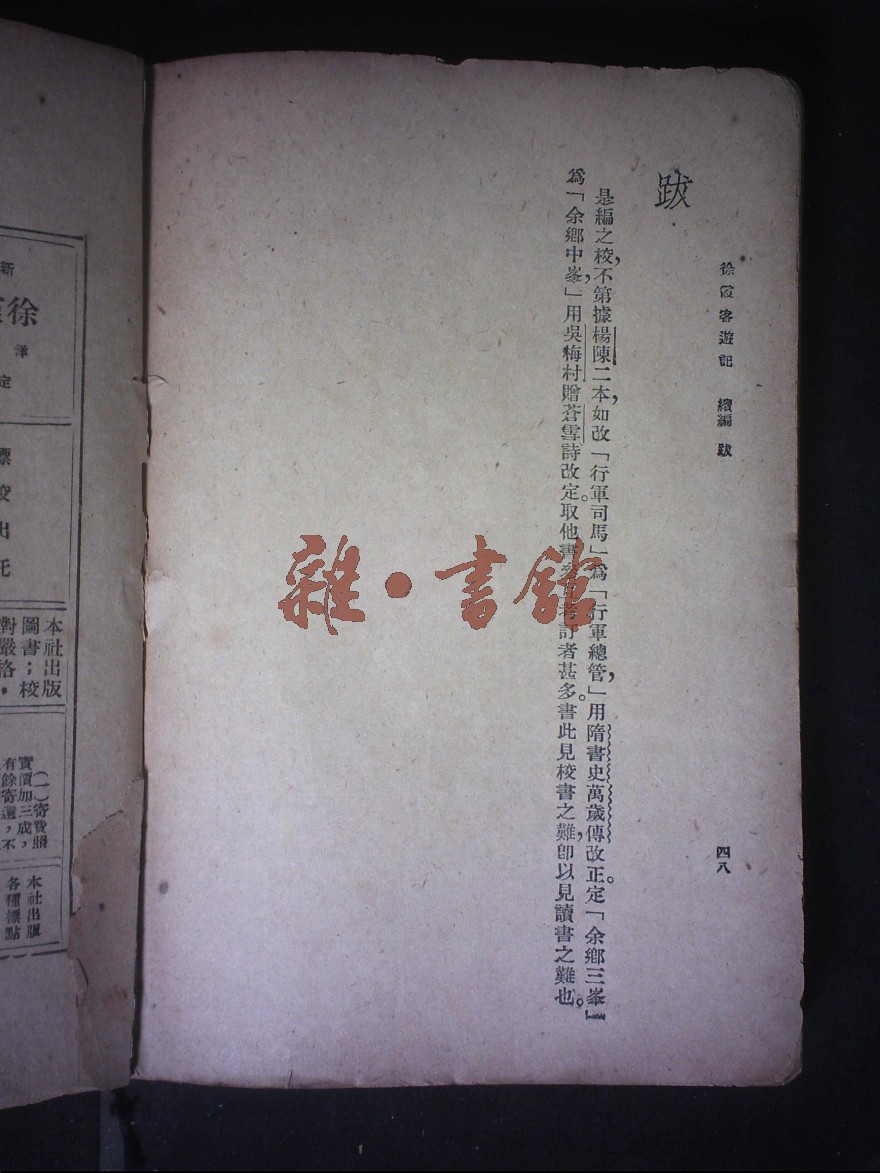 徐霞客遊記　續編　跋
四八
跋
是編之校，不第據楊陳二本，如改「行軍司馬」爲「行軍總管，」用隋書史萬歲傳改正。定「余鄉三峯」
爲「余鄉中峯，」用吳梅村贈蒼雪詩改定。取他書考訂者甚多。書此見校書之難，卽以見讀書之難也。
雜・書館
新
徐
本社出版
圖書；校
對嚴格，
（一）寄費照
實價加三成，
有餘寄還，不
本社出版
各種標點